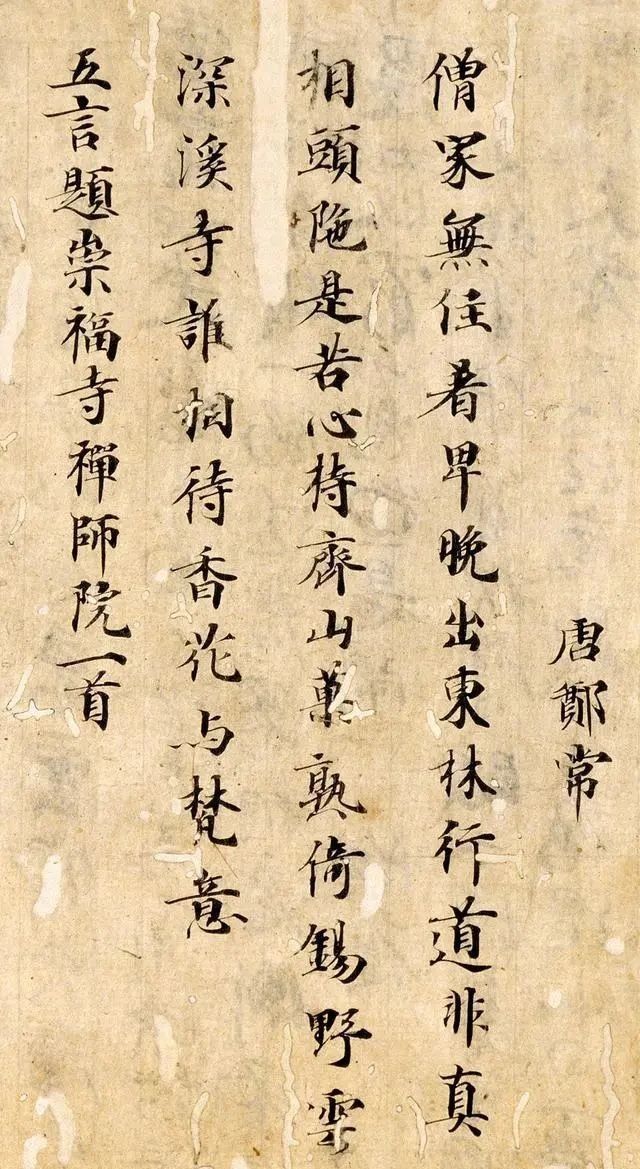 唐鄭常
僧家無住着早晚出東林行道非真
相頭陁是苦心持齊山菓熟倚錫野雲
深溪寺誰相待香花与梵意
五言題崇福寺禪師院一首